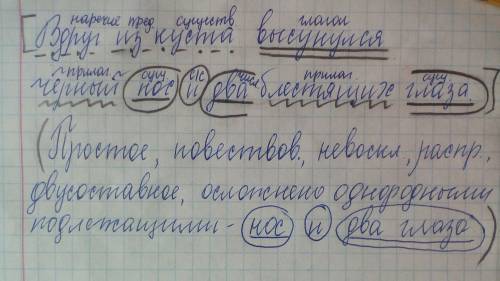 наречие пред существ глагол
[Вдруг из куста высунулся
прилаг сущ с числ прилаг сущ
чёрный нос и два блестящих глаза]
(Простое, повествов, невоскл, распр.,
двусоставное, осложнено однородными
подлежащими - нос и два глаза)